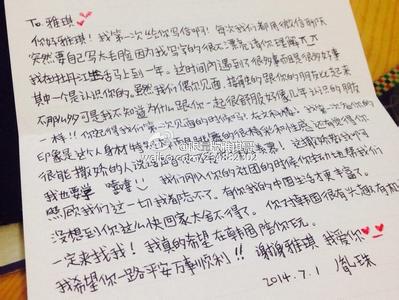 To. 雅琪
你好雅琪！我第一次给你写信啊！每次我们都用微信聊
突然要自己写太毛脑因为我写的很不漂亮请你理解ㅠㅠ
我在牡丹江生活马上到一年。这时间内遇到了很多事而且是很多好事
其中一个是认识你的。虽然我们偶尔见面，按别的跟你的朋友比起来
不那么多可是我不知道为什么跟你一起很舒服好像几年认识的朋友
一样!! 你记得我们第一次见面的时候
印象是这个人身材特
很能撒娇的人说
我也要学 嘻嘻！ 我们刚入你的社团的时候你主动地精我们
照顾我们这一切我都忘不了。有你我的中国生活才更丰富了。
没想到你这么快回家太舍不得了。你对韩国很有兴趣有机
一定来找我！我真的希望在韩国陪你玩。
我希望你一路平安万事顺利!! 谢谢雅琪 我爱你
2014.7.1 胤珠